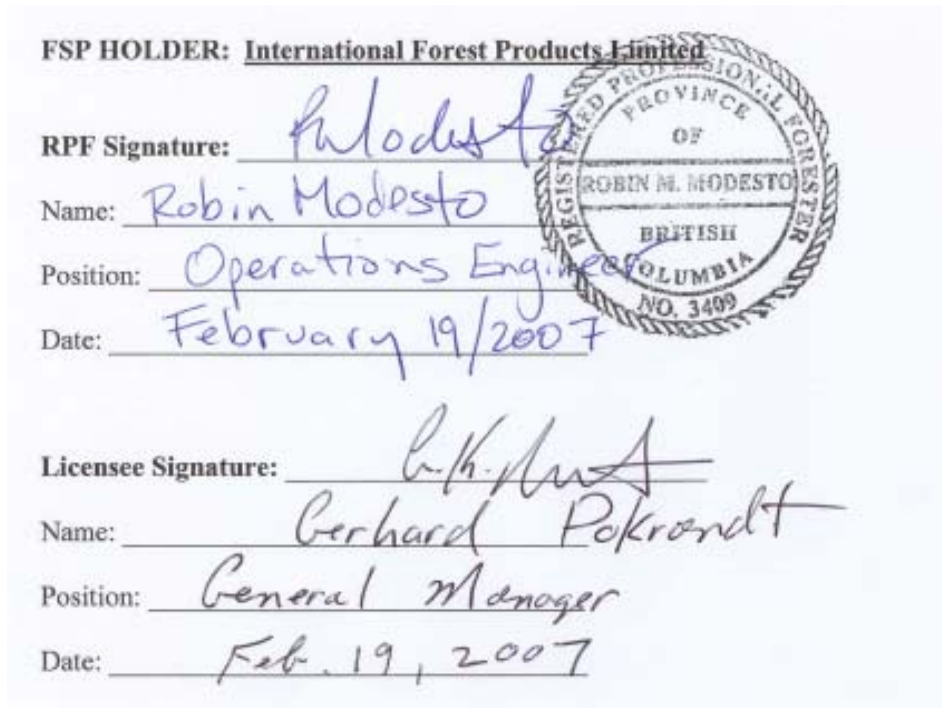 FSP HOLDER: International Forest Products Limited
RPF Signature: RModesto
Name: Robin Modesto
Position: Operations Engineer
Date: February 19/2007
REGISTERED PROFESSIONAL FORESTER
PROVINCE
OF
ROBIN M. MODESTO
BRITISH
COLUMBIA
NO. 3409
Licensee Signature:
Name: Gerhard Pokrandt
Position: General Manager
Date: Feb. 19, 2007